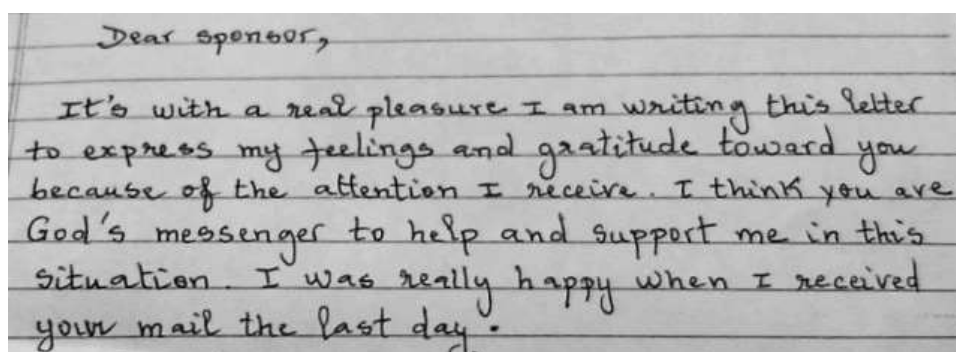 Dear sponsor,
It's with a real pleasure I am writing this letter
to express my feelings and gratitude toward you
because of the attention I receive. I think you are
God's messenger to help and support me in this
situation. I was really happy when I received
your mail the last day.